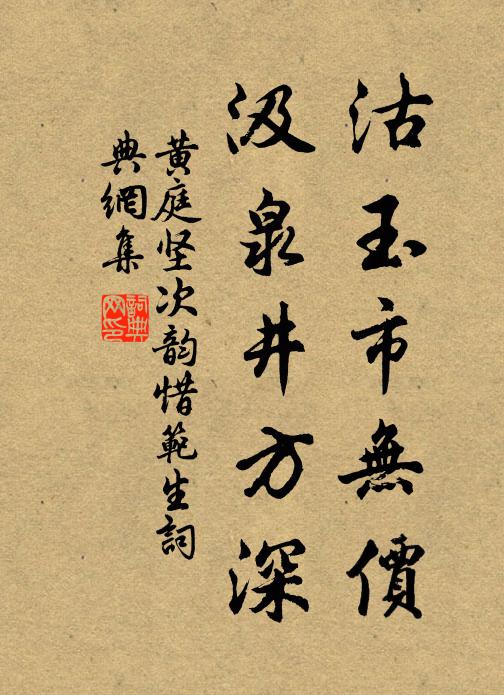 沽玉市無價
汲泉井方深
黄庭坚次韵惜範生詞
典網集
詞典網印